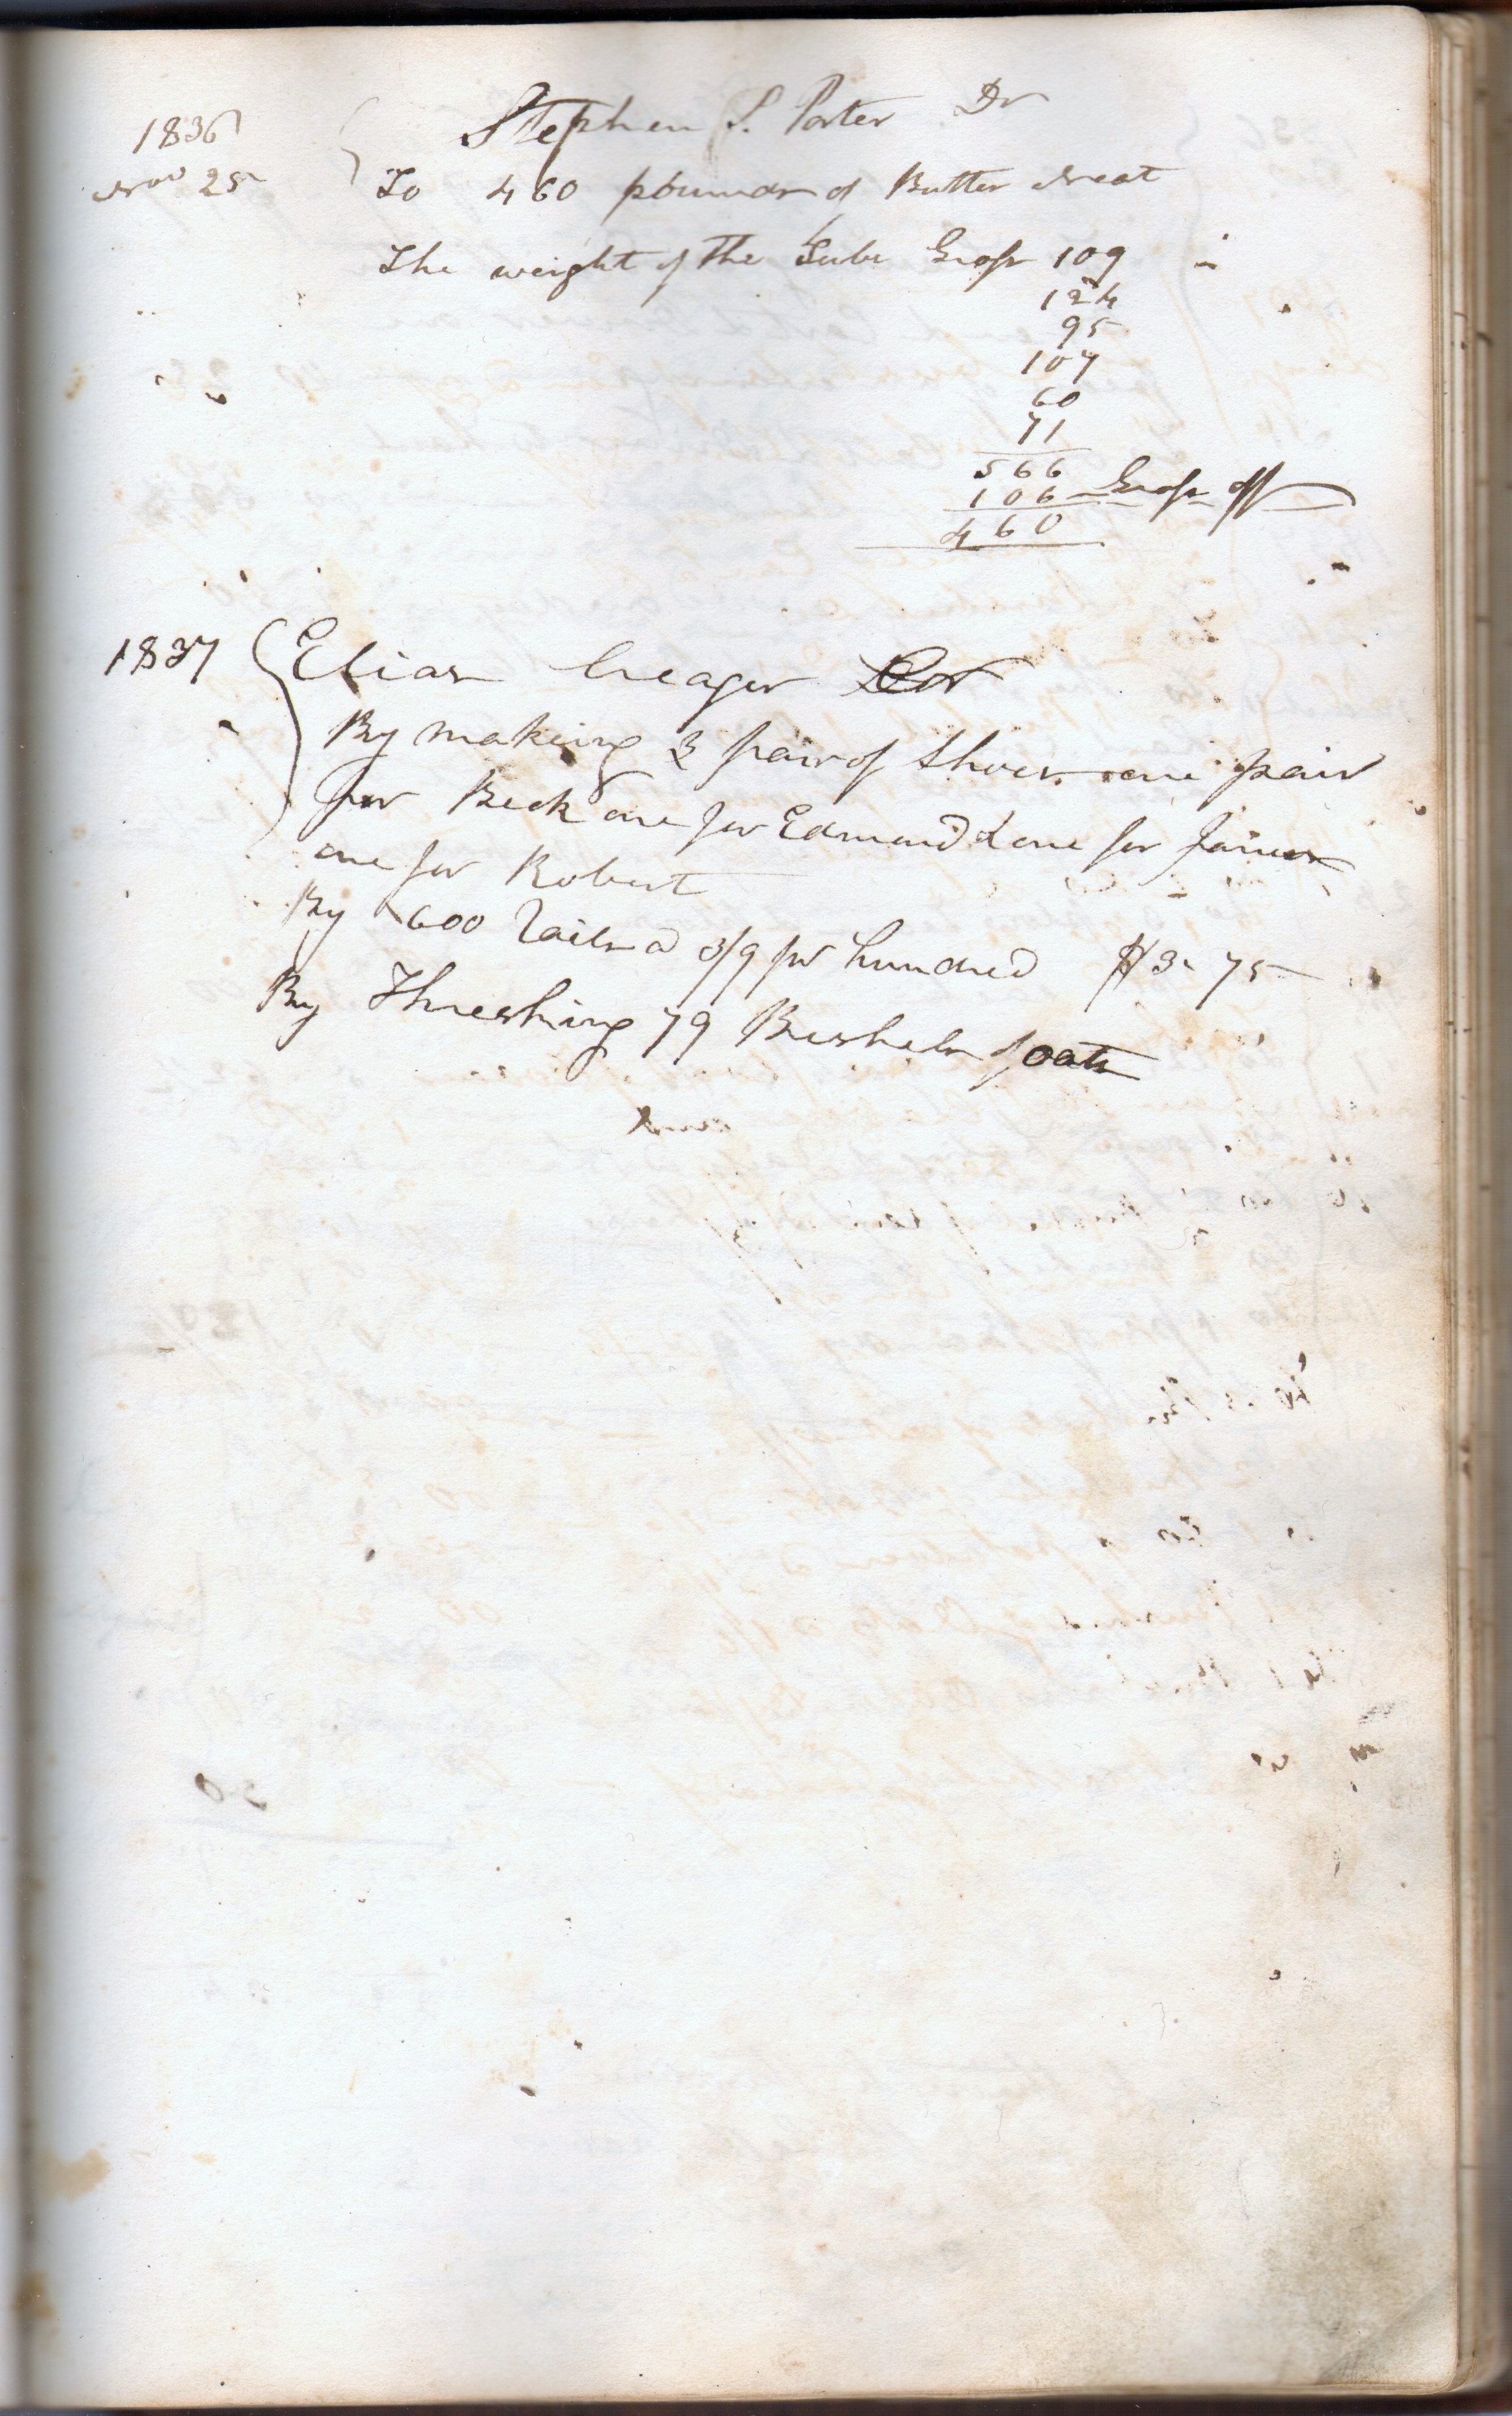 1836 Stephen S. Porter Dr
Nov 25 To 460 pounds of Butter Neat
The weight of the Tubs Gross 109
124
95
107
60
71
566
106 Gross off
460
1837 Elias Creager Cr
By making 3 pair of Shoes one pair
for Beck one for Edmund & one for James
one for Robert
By 600 Rails a 3/9 pr hundred $3-75
By Threshing 79 Bushels of oats